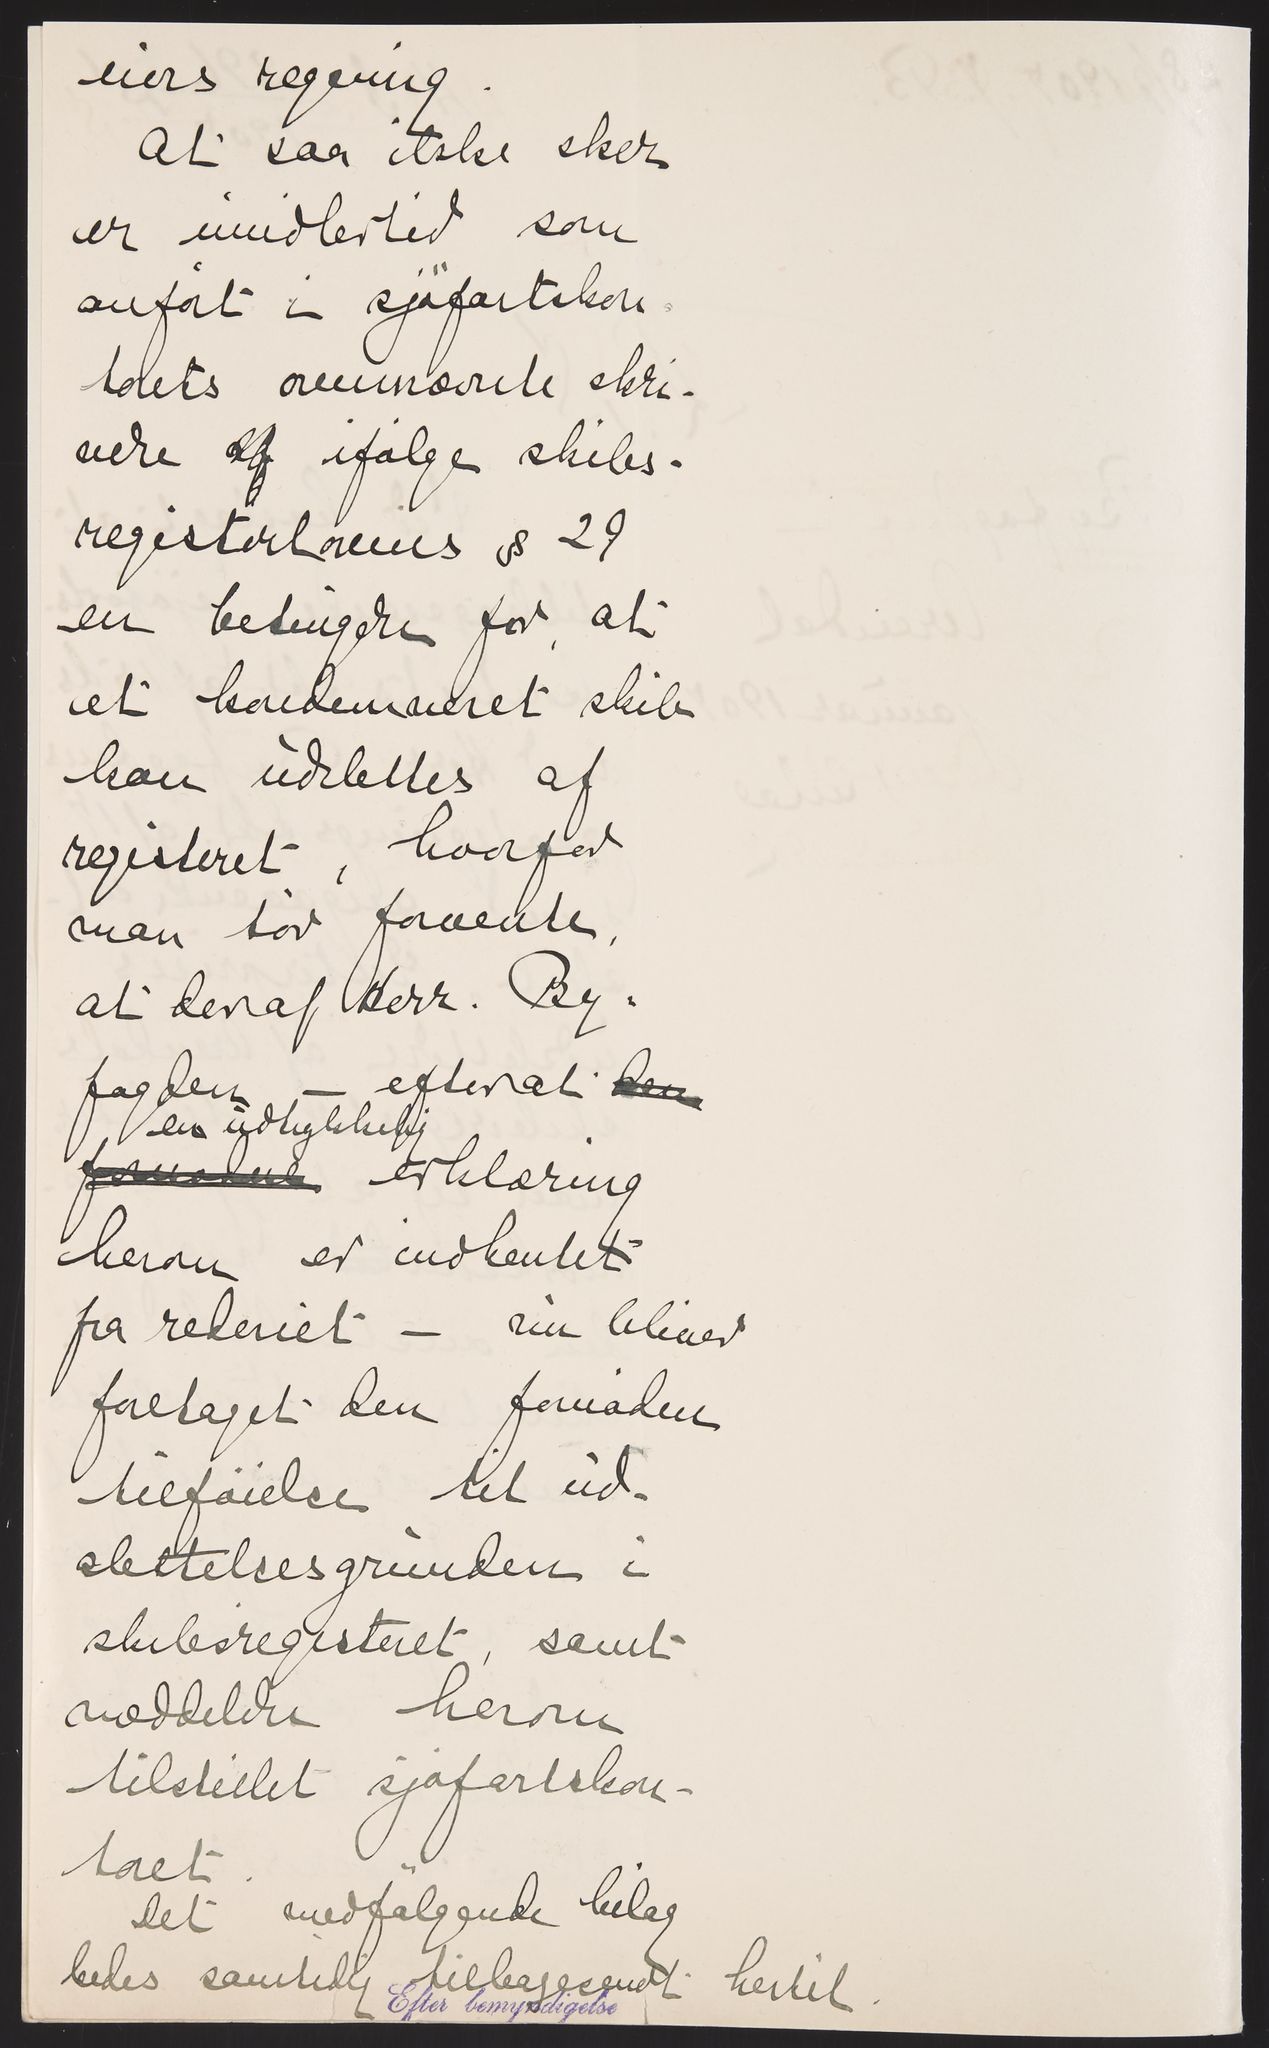 eiers regning.
At saa ikke sker
er imidlertid som
anført i sjöfartskon-
torets ovennævnte skri-
velse ifølge skibs-
registerlovens § 29
en betingelse for, at
et kondemneret skib
kan udslettes af
registeret, hvorfor
man tør forvente,
at der af herr. By-
fogden – efterat den
en udtrykkelig
erklæring
herom er indhentet
fra rederiet – nu bliver
foretaget den fornødne
tilføielse til ud-
slettelsesgrunden i
skibsregisteret, samt
meddelelse herom
tilstillet sjøfartskon-
toret.
Det medfølgende bilag
bedes samtidig tilbagesendt hertil.
Efter bemyndigelse